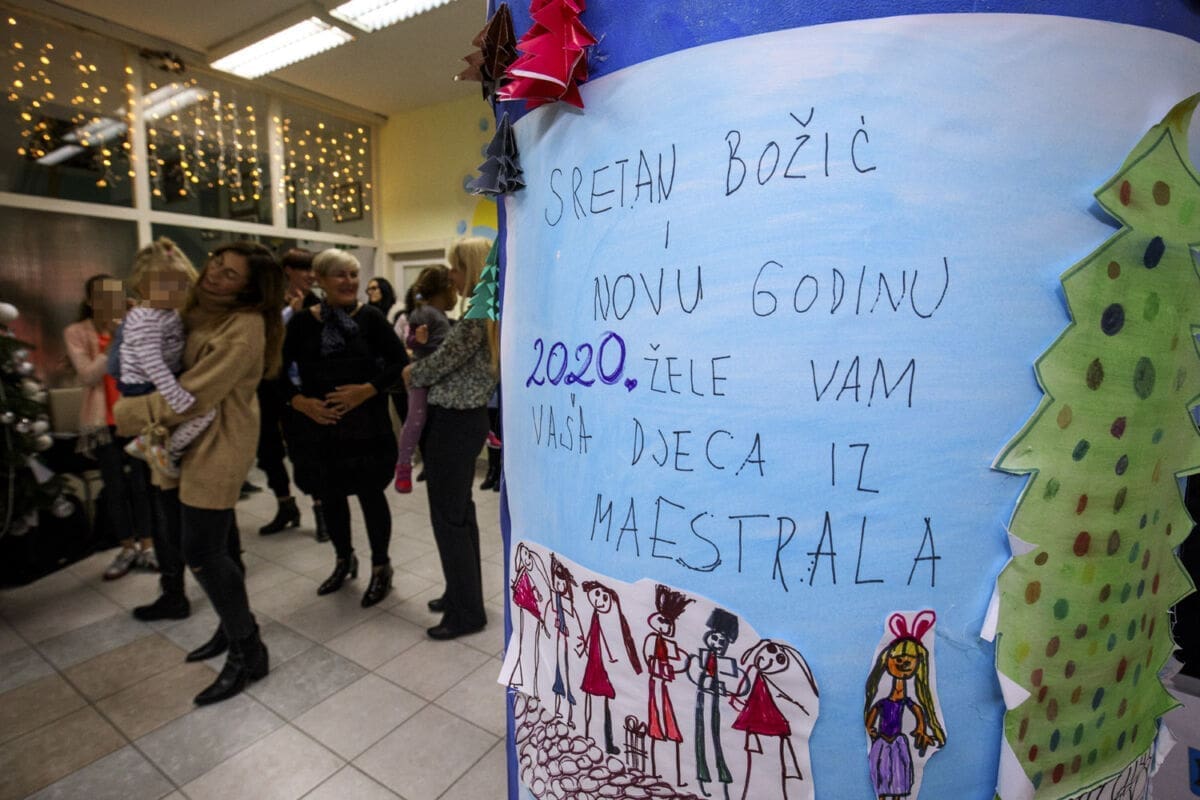 SRETAN BOŽIĆ
I
NOVU GODINU
2020. ŽELE VAM
VAŠA DJECA IZ
MAESTRALA